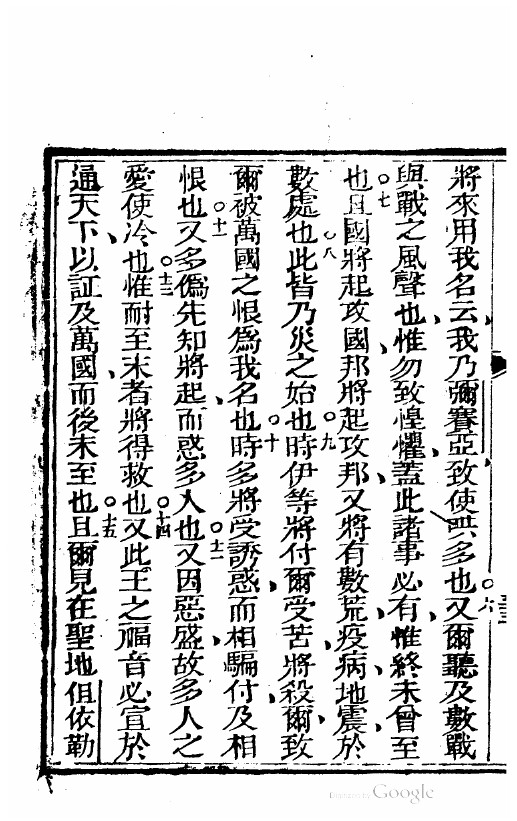 將來用我名云我乃彌賽亞致使哄多也又爾聽及數戰
六
與戰之風聲也惟勿致惶懼蓋此諸事必有惟終未曾至
七
也且國將起攻國邦將起攻邦又將有數荒疫病地震於
數處也此皆乃災之始也時伊等將付爾受苦將殺爾致
八
九
爾被萬國之恨爲我名也時多將受誘惑而相騙付及相
十
恨也又多僞先知將起而惑多人也又因惡盛故多人之
十一
十二
愛使冷也惟耐至末者將得救也又此王之福音必宣於
十三
十四
通天下以証及萬國而後末至也且爾見在聖地但依勒
十五
Digitized by Google